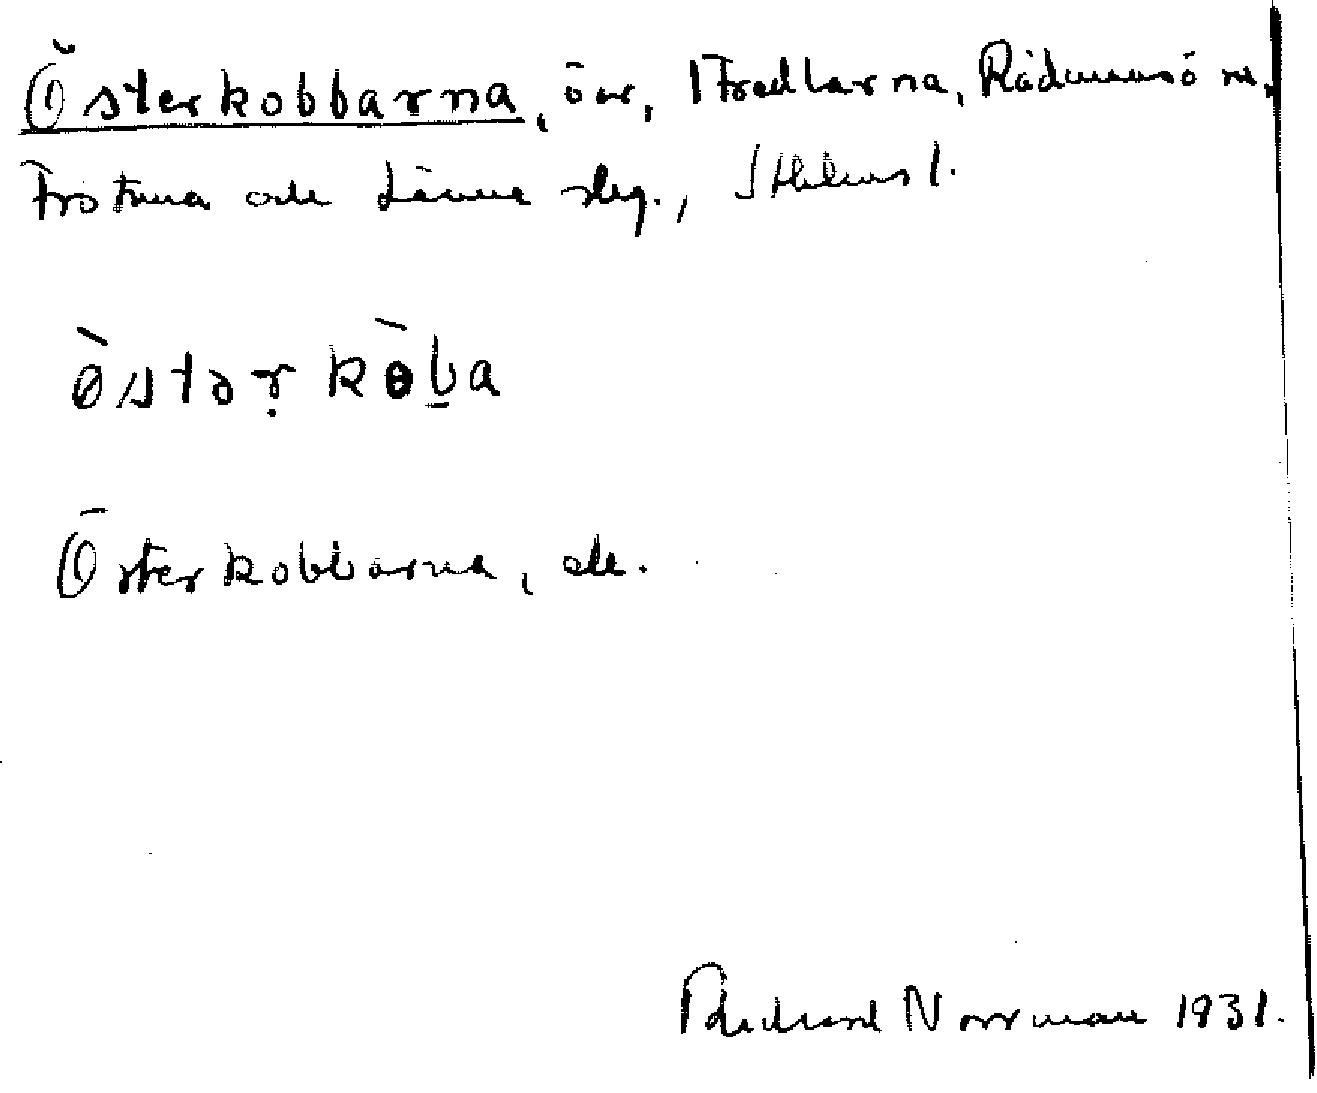 Österkobbarna, öar, Fredlarna, Rådmansö sn,
Frötuna och Länna slg., Sthlms l.
ös̀tər̩ kòb̠a
Österkobbarna, ek.
Richard Norrman 1931.